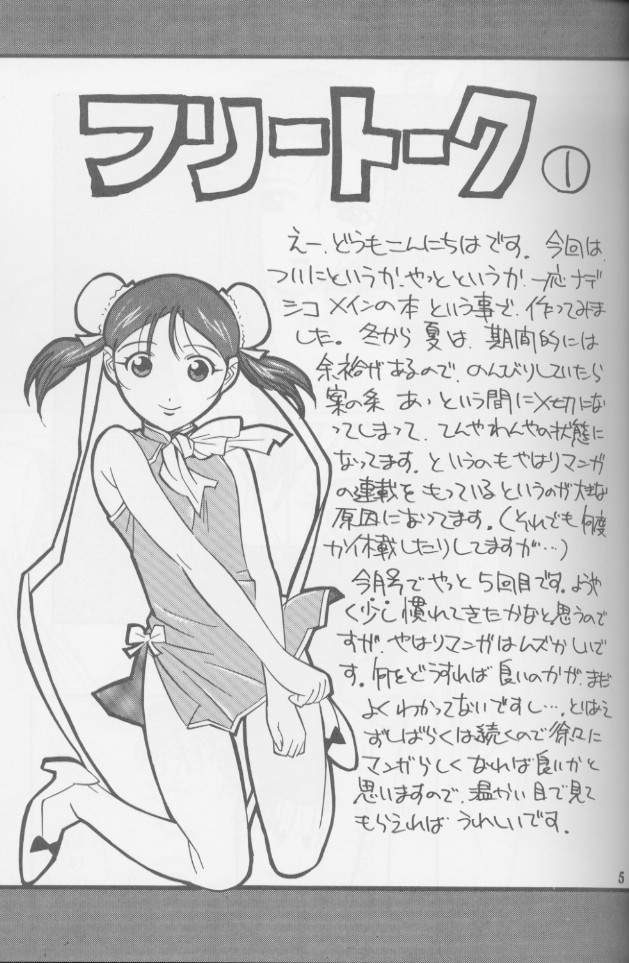 フリートーク ①
えー、どうもこんにちはです。今回は、
ついにというか、やっとというか、一応ナデ
シコメインの本という事で、作ってみま
した。冬から夏は、期間的には
余裕があるので、のんびりしていたら
案の条 あっという間に〆切にな
ってしまって、てんやわんやの状態に
なってます。というのもやはりマンガ
の連載をもっているというのが大きな
原因になってます。(それでも何度
か休載したりしてますが…)
今月号でやっと5回目です。ようや
く少し慣れてきたかなと思うので
すが、やはりマンガはムズかしいで
す。何をどうすれば良いのかが、まだ
よくわかってないですし…、とはいえ
しばらくは続くので徐々に
マンガらしくなれば良いかと
思いますので、温かい目で見て
もらえれば うれしいです。
5